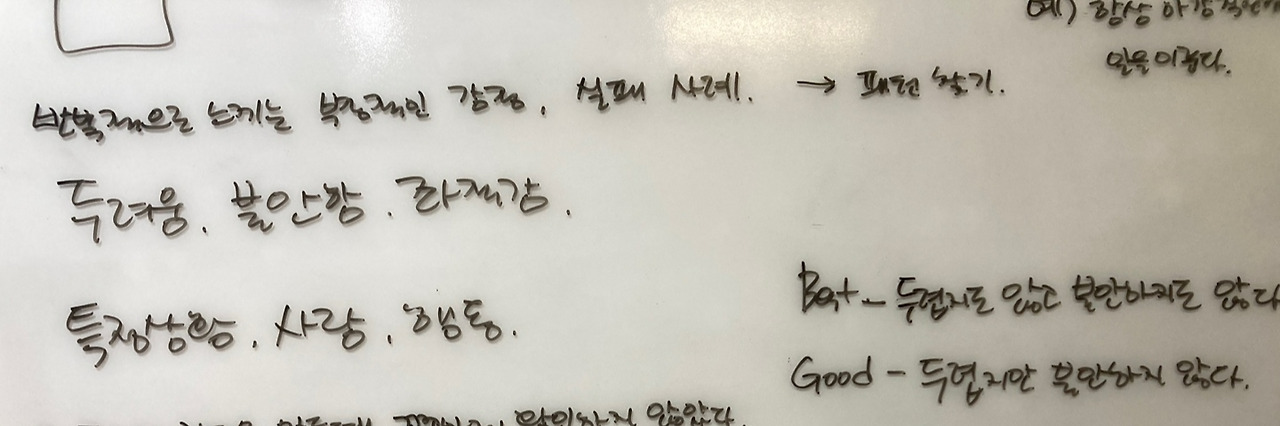 예) 항상
일을 이룹다.
반복적으로 느끼는 부정적인 감정, 실패 사례. → 패턴 찾기.
두려움, 불안함, 좌절감.
특정상황, 사람, 행동.
Best - 두렵지도 않고 불안하지도 않다
Good - 두렵지만 불안하지 않다.
않았다.